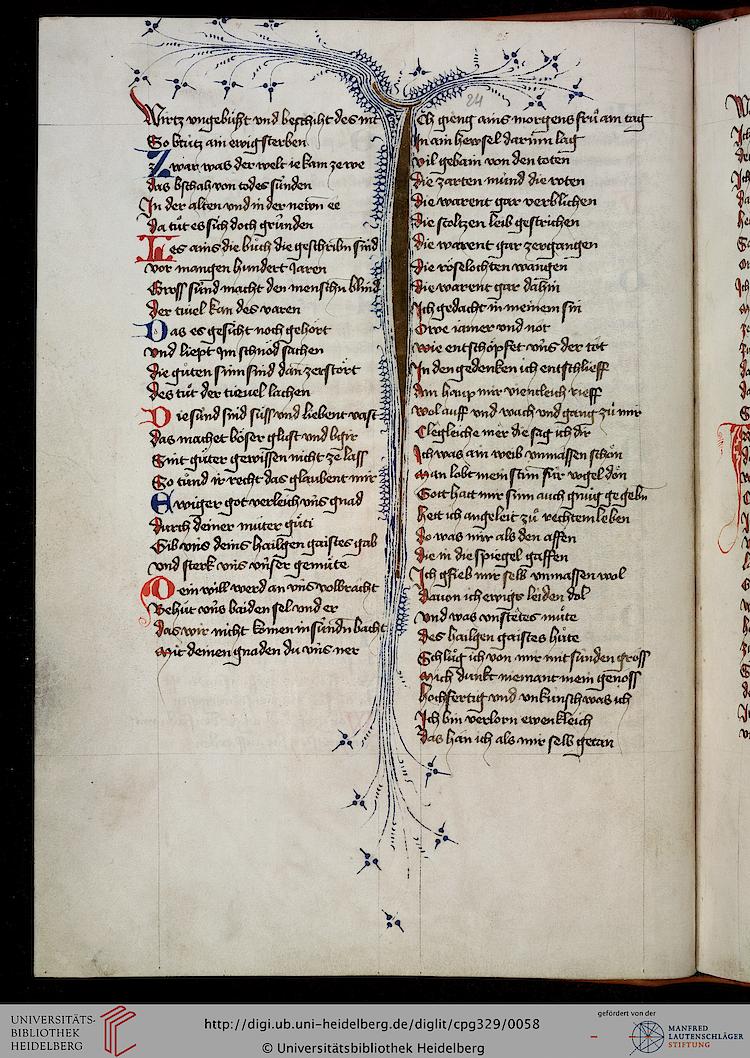 Wirtz ungebüsst vnd beschiht des nit
So bringt ain ewig sterben
Zwar was der welt ie kam ze we
Das bschah von todes sünden
In der alten vnd in der newn ee
Da tüt es sich doch gründen
Les ains die büch die geschribn sind
vor mangen hundert Jaren
Gross sünd macht den menschn blind
Der tiuel kan des varen
Das es gesicht noch gehört
vnd liept im schnöd sachen
die güten sinn sind dan zerstört
des tüt der tieuel lachen
Die sünd sind süss vnd liebent vast
das machet böser glust vnd bgir
Sint güter gewissen nicht ze lass
So tünd ir recht das glaubent mir
Ewiger got verleich vns gnad
durch deiner muter güti
Gib vns deins hailgen gaistes gab
vnd sterk vns vnser gemüte
Dein will werd an vns volbracht
Behüt vns baiden sel vnd er
das wir nicht komen in sündn bacht
Mit deinen gnaden du vns ner
24
Ich gieng ains morgens frü am tag
In ain hewsel darinn lag
vil gebain von den toten
die zarten mund die roten
die warent gar verblichen
die stoltzen leib gestrichen
die warent gar zergangen
die röselochten wangen
die warent gar dahin
Ich gedacht in meinem sin
Owe iamer vnd not
wie entschöpfet vns der tot
In den gedenken ich entschlieff
Am haup mir vientleich rieff
wol auff vnd wach vnd gang zü mir
Clegleiche mer die sag ich dir
Ich was am weib vnmassen schön
Man lobt mein stim für vogel dön
Gott hatt mir sinn auch gnüg gegebn
hett ich angeleit zü rechtem leben
do was mir als den affen
die in die spiegel gaffen
Ich gfieb mir selb vnmassen wol
Dauon ich ewigs leiden dol
vnd was vnstetes müte
des hailgen gaistes hüte
Schlüg ich von mir mit sunden gross
Mich dunkt niemant mein genoss
hochfertig vnd vnkünsch was ich
Ich bin verlorn ewenkleich
das han ich als mir selb getan
UNIVERSITÄTS-
BIBLIOTHEK
HEIDELBERG
http://digi.ub.uni-heidelberg.de/diglit/cpg329/0058
© Universitätsbibliothek Heidelberg
gefördert von der
MANFRED
LAUTENSCHLÄGER
STIFTUNG